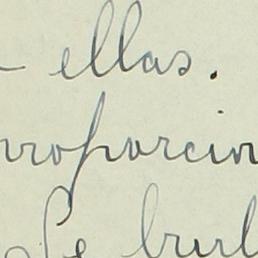 ellas.
proporcion
Se burl